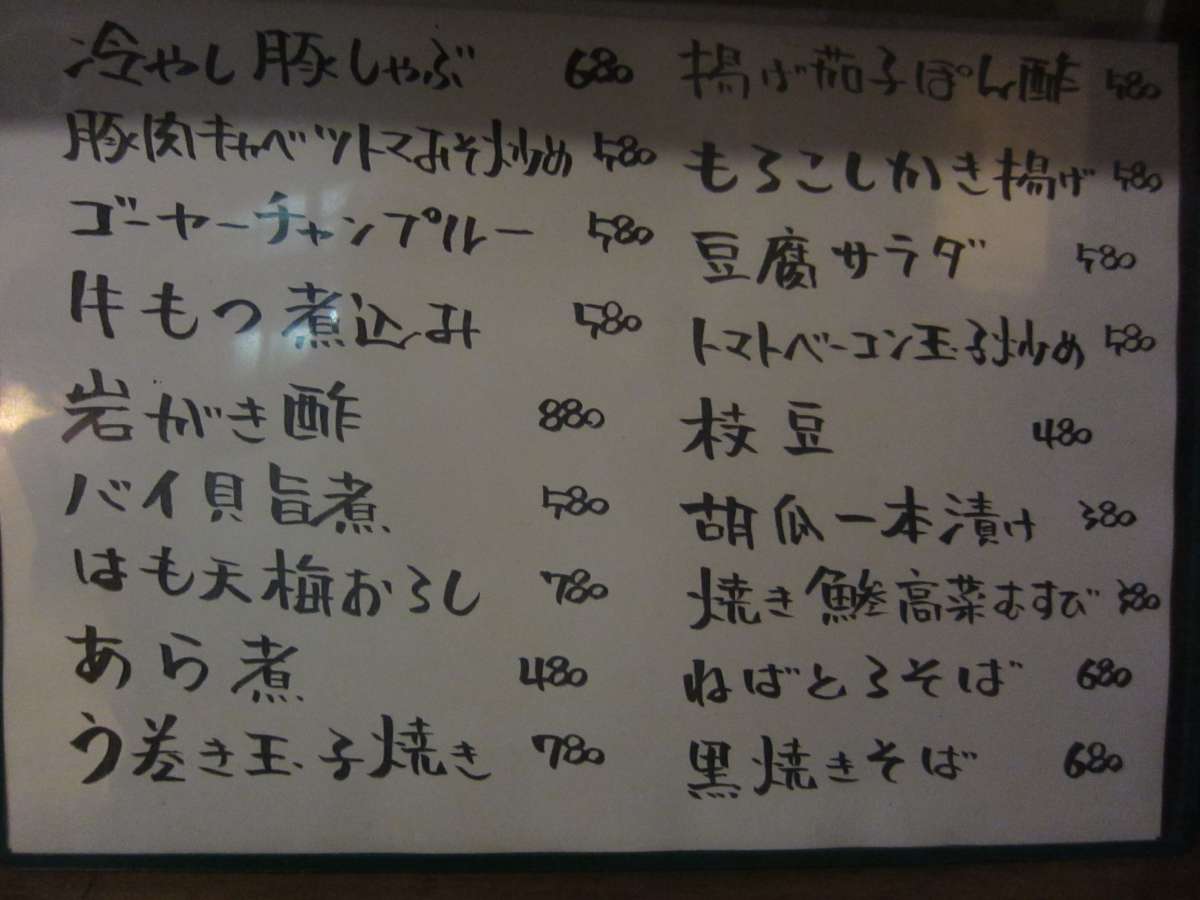 冷やし豚しゃぶ 680
豚肉キャベツトマみそ炒め 580
ゴーヤーチャンプルー 580
牛もつ煮込み 580
岩がき酢 880
バイ貝旨煮 580
はも天梅おろし 780
あら煮 480
う巻き玉子焼き 780
揚げ茄子ぽん酢 580
もろこしかき揚げ 580
豆腐サラダ 580
トマトベーコン玉子炒め 580
枝豆 480
胡瓜一本漬け 380
焼き鯵高菜むすび 380
ねばとろそば 680
黒焼きそば 680